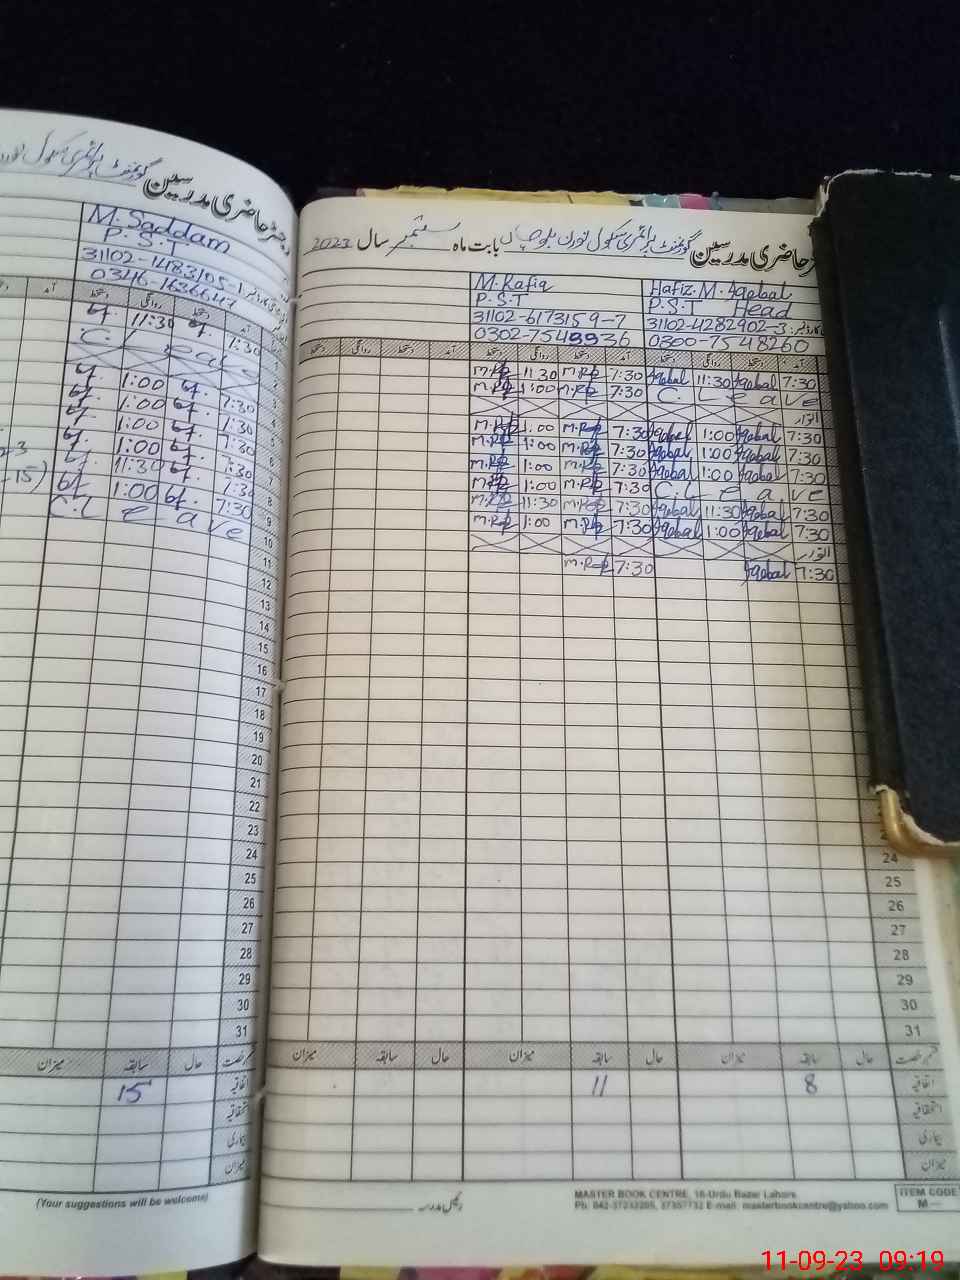 رجسٹر حاضری مدرسین گورنمنٹ پرائمری سکول
M. Saddam
P.S.T
31102-1483105-1
0346-1636647
آمد دستخط روانگی دستخط
7:30 11:30
C. L e a v e
7:30 1:00
7:30 1:00
7:30 1:00
7:30 1:00
7:30 11:30
7:30 1:00
C.L e a v e
9
10
11
12
13
14
15
16
17
18
19
20
21
22
23
24
25
26
27
28
29
30
31
حال سابقہ میزان
اتفاقیہ 15
استحقاقیہ
بیماری
میزان
(Your suggestions will be welcome)
رجسٹر حاضری مدرسین گورنمنٹ پرائمری سکول بابت ماہ ستمبر سال 2023
Hafiz. M. Aqebal M. Rafiq
P.S.T Head P.S.T
31102-4282902-3 31102-6173159-7
0300-7548260 0302-7549936
آمد دستخط روانگی دستخط آمد دستخط روانگی دستخط آمد دستخط روانگی دستخط
7:30 Aqebal 11:30 Aqebal 7:30 M.Rfq 11:30 M.Rfq
C. L e a v e 7:30 M.Rfq 1:00 M.Rfq
اتوار
7:30 Aqebal 1:00 Aqebal 7:30 M.Rfq 1:00 M.Rfq
7:30 Aqebal 1:00 Aqebal 7:30 M.Rfq 1:00 M.Rfq
7:30 Aqebal 1:00 Aqebal 7:30 M.Rfq 1:00 M.Rfq
C. L e a v e 7:30 M.Rfq 1:00 M.Rfq
7:30 Aqebal 11:30 Aqebal 7:30 M.Rfq 11:30 M.Rfq
7:30 Aqebal 1:00 Aqebal 7:30 M.Rfq 1:00 M.Rfq
اتوار
7:30 Aqebal 7:30 M.Rfq
24
25
26
27
28
29
30
31
حال سابقہ میزان حال سابقہ میزان حال سابقہ میزان
اتفاقیہ 8 11
استحقاقیہ
بیماری
میزان
رئیس مدرسہ
MASTER BOOK CENTRE, 16-Urdu Bazar Lahore
Ph: 042-37232205, 37357732 E-mail: masterbookcentre@yahoo.com
ITEM CODE
M—
11-09-23 09:19